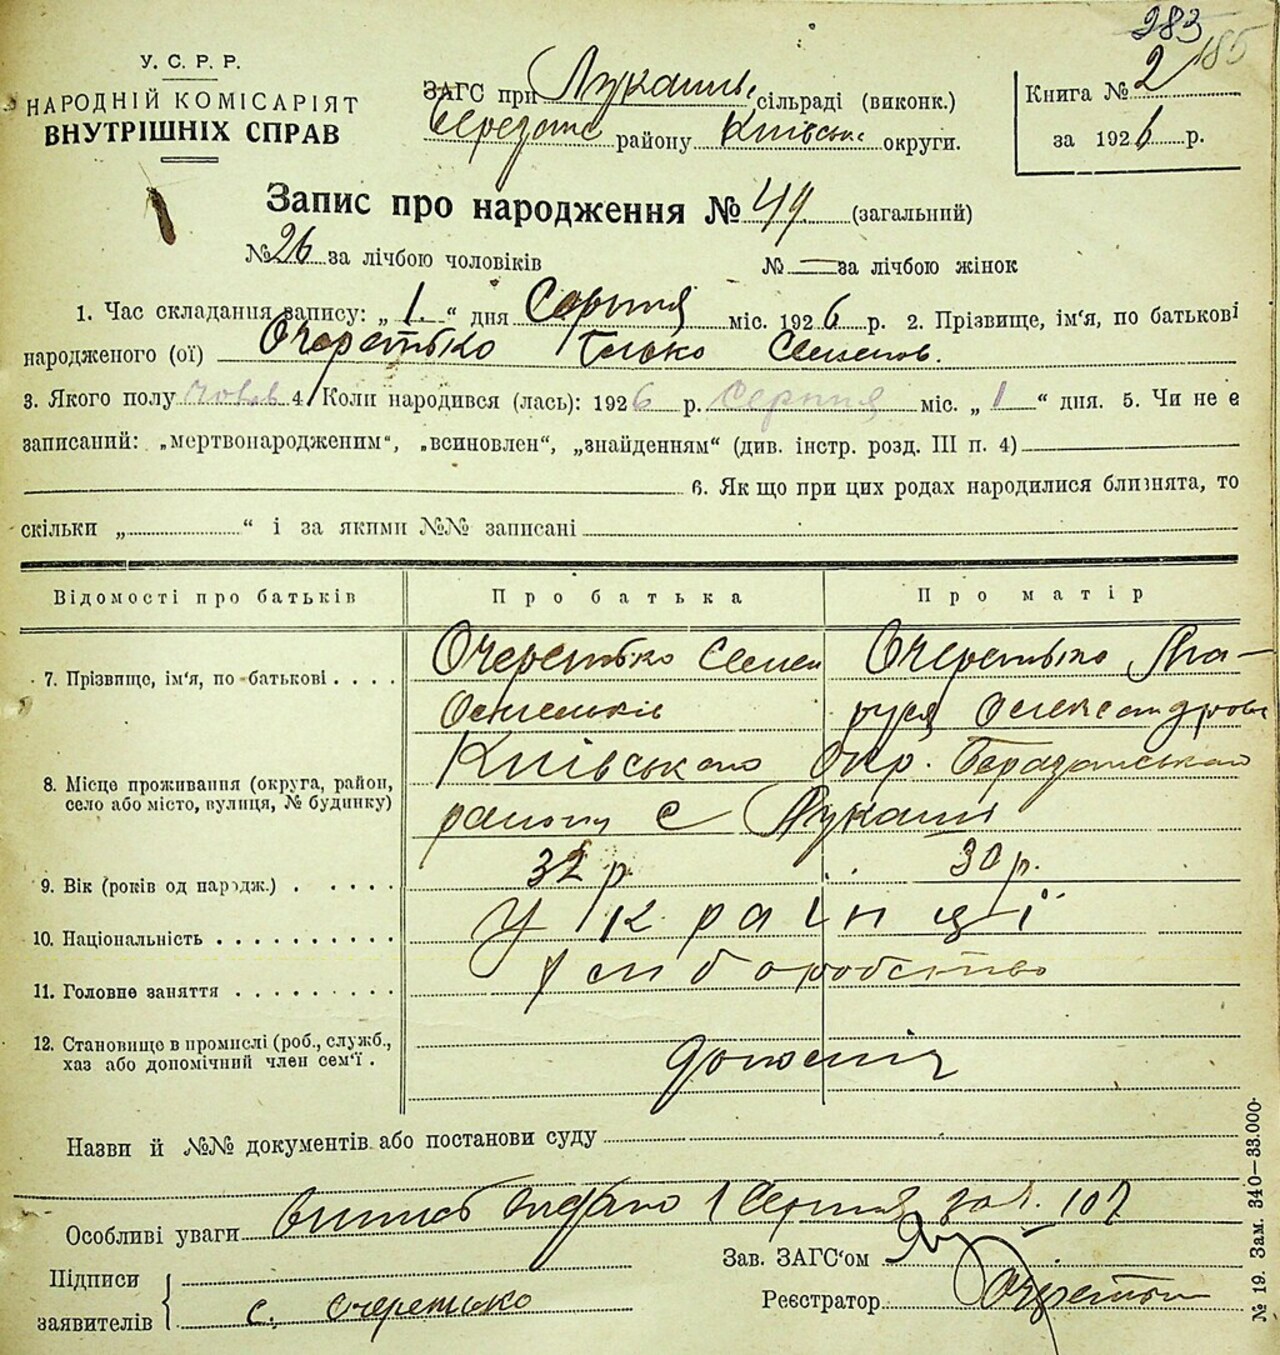 283
185
У. С. Р. Р.
НАРОДНІЙ КОМІСАРІЯТ
ВНУТРІШНІХ СПРАВ
ЗАГС при Лукашів. сільраді (виконк.)
Березанс району Київськ. округи.
Книга № 2
за 1926 р.
Запис про народження № 49. (загальний)
№ 26 за лічбою чоловіків № — за лічбою жінок
1. Час складання запису: „ 1. “ дня Серпня міс. 1926 р. 2. Прізвище, ім'я, по батькові
народженого (ої) Очеретько Семенов.
3. Якого полу чолов 4. Коли народився (лась): 1926 р. Серпня міс. „ 1 “ дня. 5. Чи не є
записаний: „мертвонародженим“, „всиновлен“, „знайденням“ (див. інстр. розд. III п. 4)
6. Як що при цих родах народилися близнята, то
скільки „ “ і за якими №№ записані
Відомості про батьків Про батька Про матір
7. Прізвище, ім'я, по батькові . . . . Очеретько Семен Очеретько Ма-
руся Олександровн
8. Місце проживання (округа, район, село або місто, вулиця, № будинку) Київського Окр. Березанського
району с Лукаші
9. Вік (років од народж.) . . . . . 32 р. 30 р.
10. Національність . . . . . . . . . . Українці
11. Головне заняття . . . . . . . . . хліборобство
12. Становище в промислі (роб., службо.,
хаз або допомічний член сем'ї .
Назви й №№ документів або постанови суду
Особливі уваги Випис видано 1 Серпня за № 107
Підписи
заявителів
с. Очеретько
Зав. ЗАГС'ом
Реєстратор
№ 19. Зам. 340—33.000